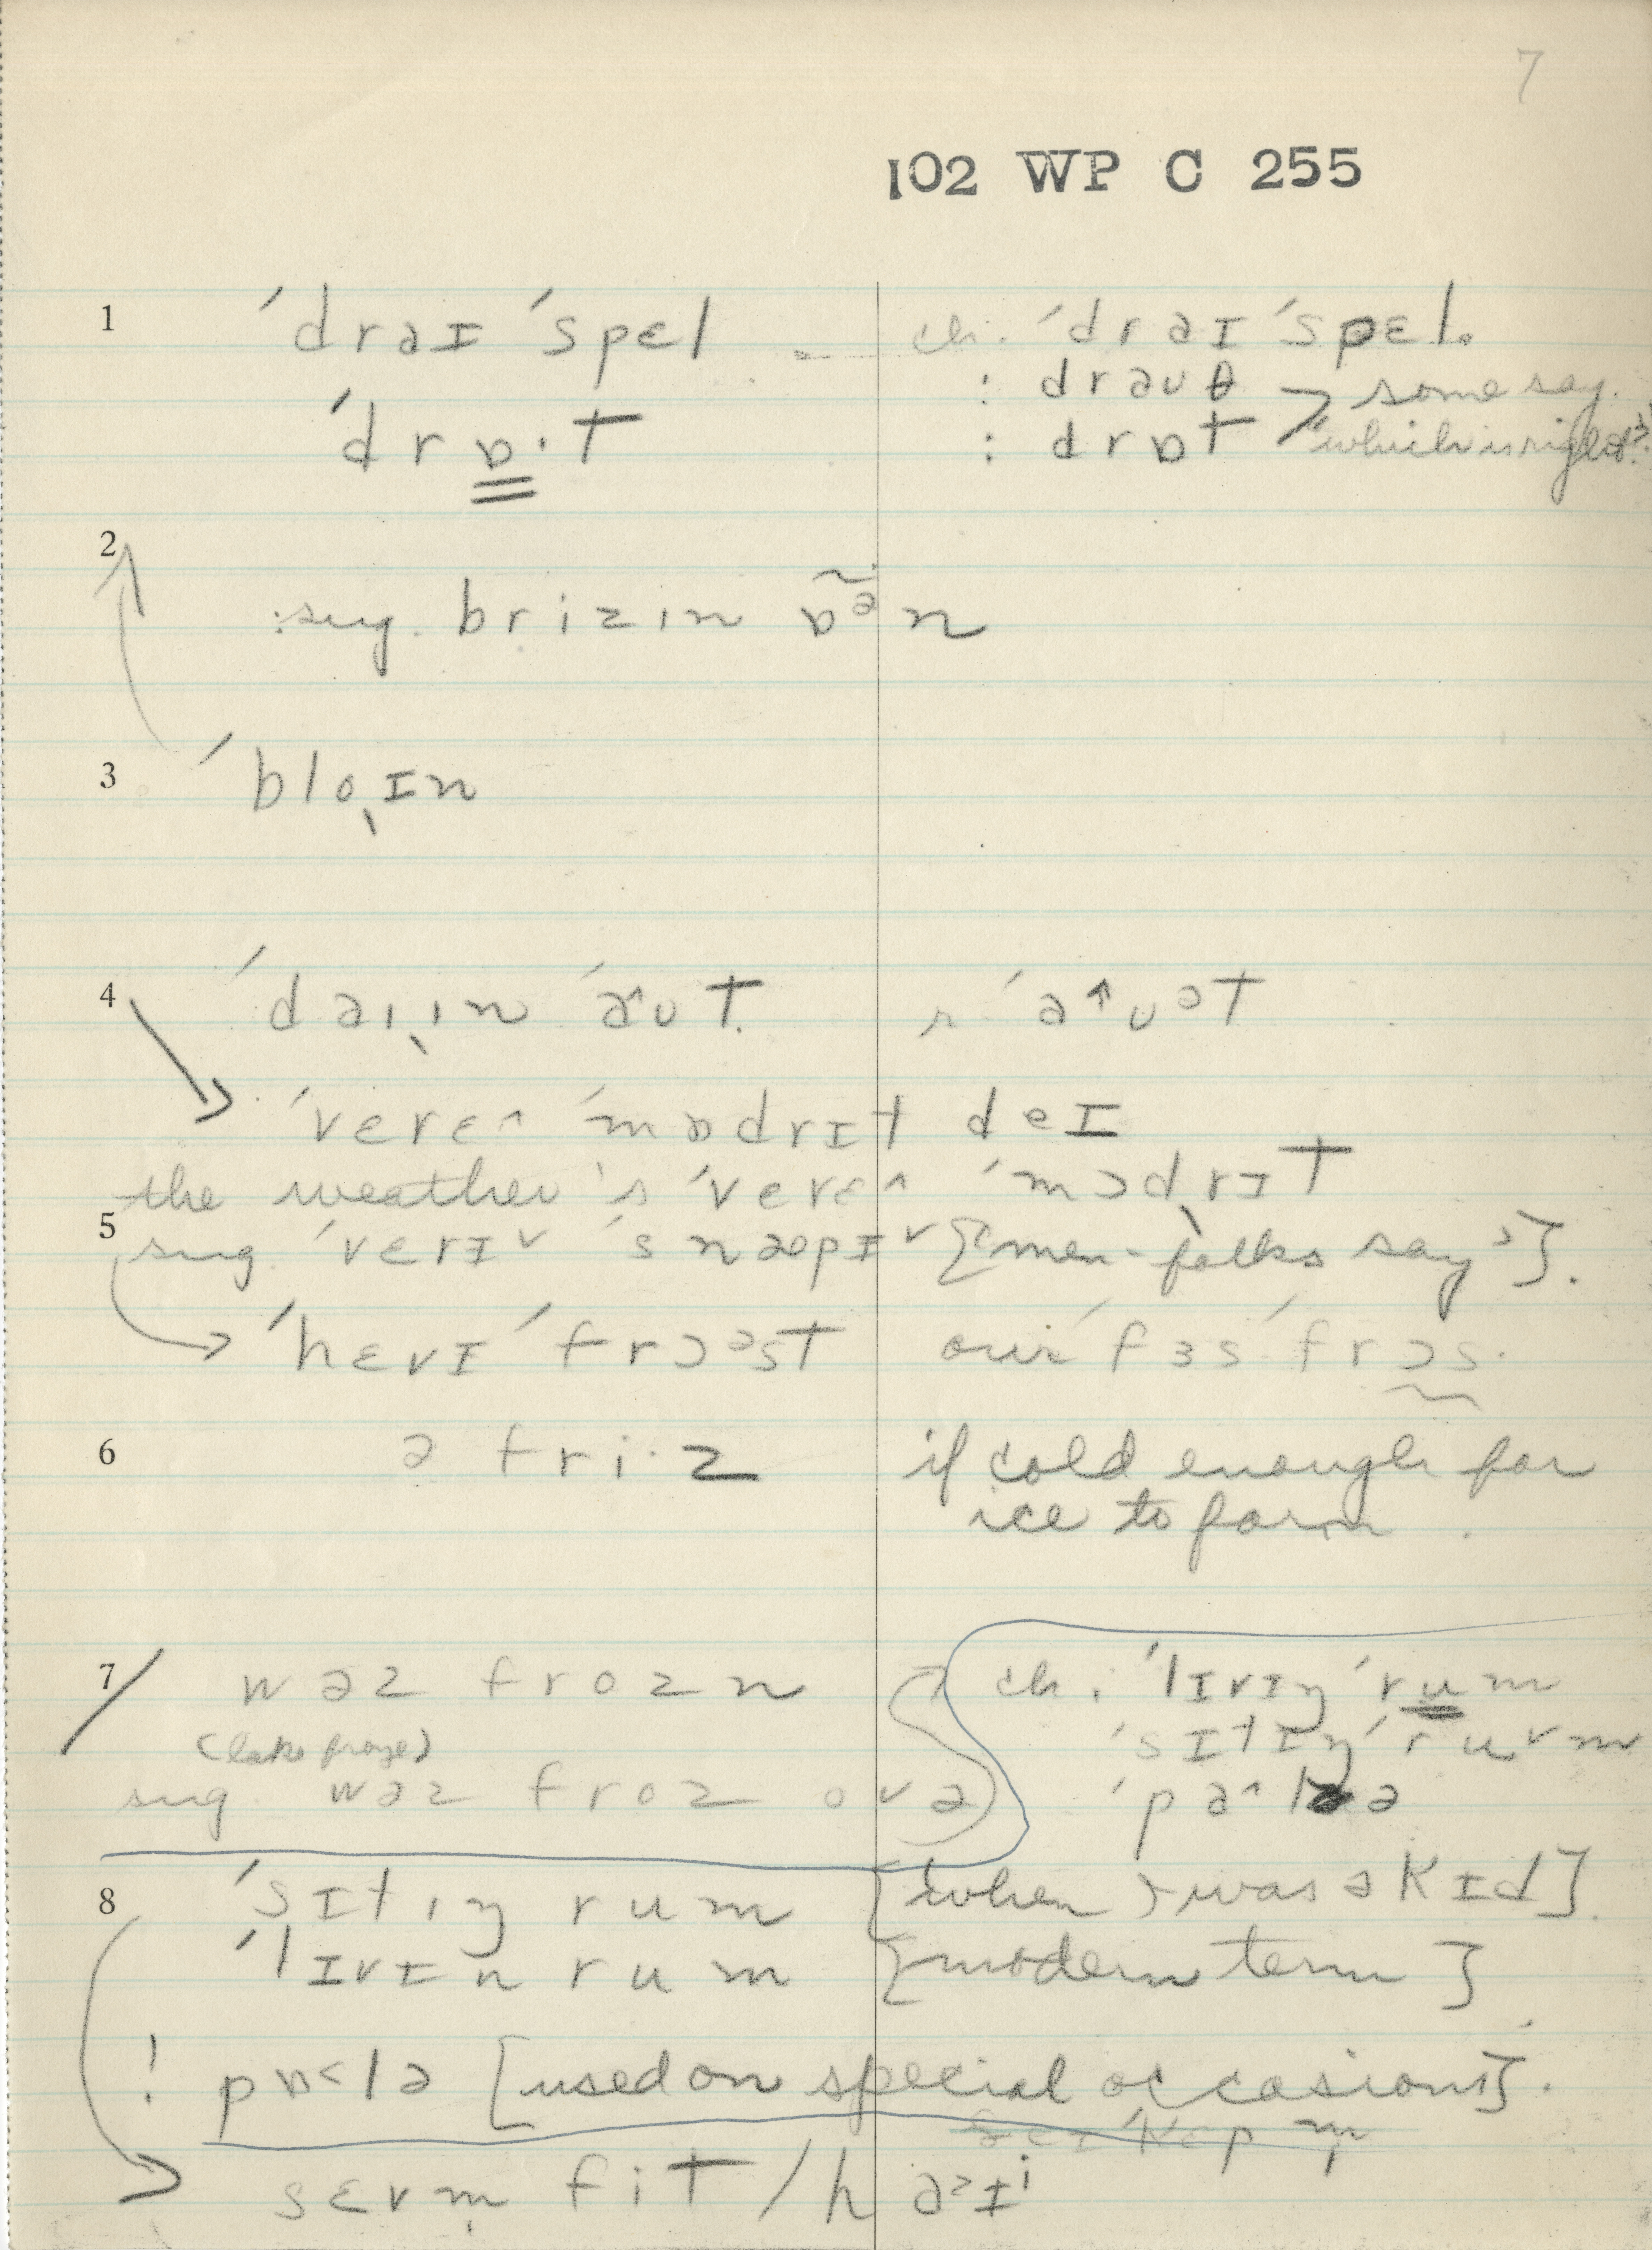 7
102 WP C 255
1 ˈdraɪ ˈspɛl - ch. ˈdraɪ ˈspɛl.
: drauθ > some say.
ˈdrɒ·t : drɒt "which is right?"
2
:sug. brizɪn ɒ̃ᵊn
3 ˈbloˌɪn
4 ˈdaɪˌɪn ˈa^ut. r. ˈa↑uᵊt
ˈvɛrɛ^ ˈmɒdrɪt deɪ
the weather's ˈvɛrɛ^ ˈmɔdˌrɪt
5 sug. ˈvɛrɪˇ ˈsnæpɪˇ ["men-folks say"].
ˈhɛvɪ ˈfrɔᵊst our ˈfɜs ˈfrɔs.
6 ə fri·z if cold enough for
ice to form.
7 wəz frozn ch. ˈlɪvɪŋ ˈrum
(lake froze) ˈsɪtɪŋ ˈruˇm
sug. wəz froz ovə ˈpa^lə
8 ˈsɪtɪŋ rum [when I was ə kɪd].
ˈlɪvɪn rum [modern term]
! pɒ<lə [used on special occasions].
sɛvm̩ fit / haᵊɪⁱ